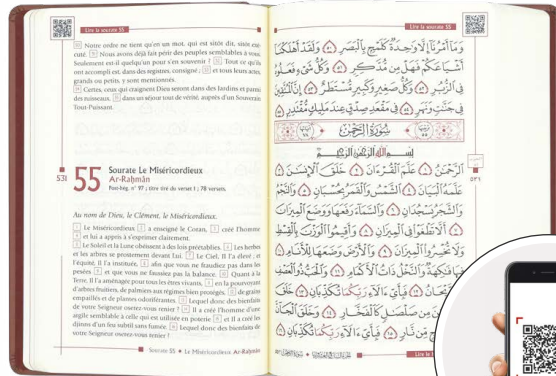 Lire la sourate 55
50 Notre ordre ne tient qu'en un mot, qui est sitôt dit, sitôt exé-
cuté. 51 Nous avons déjà fait périr des peuples semblables à vous.
Seulement est-il quelqu'un pour s'en souvenir ? 52 Tout ce qu'ils
ont accompli est, dans des registres, consigné ; 53 et tous leurs actes,
grands ou petits, y sont mentionnés.
54 Certes, ceux qui craignent Dieu seront dans des Jardins et parmi
des ruisseaux, 55 dans un séjour tout de vérité, auprès d'un Souverain
Tout-Puissant.
531
55
Sourate Le Miséricordieux
Ar-Rahmân
Post-hég. n° 97 ; tire titre du verset 1 ; 78 versets.
Au nom de Dieu, le Clément, le Miséricordieux.
1 Le Miséricordieux 2 a enseigné le Coran, 3 créé l'homme
4 et lui a appris à s'exprimer clairement.
5 Le Soleil et la Lune obéissent à des lois préétablies. 6 Les herbes
et les arbres se prosternent devant Lui. 7 Le Ciel, Il l'a élevé ; et
l'équité, Il l'a instituée, 8 afin que vous ne fraudiez pas dans les
pesées 9 et que vous ne faussiez pas la balance. 10 Quant à la
Terre, Il l'a aménagée pour tous les êtres vivants, 11 en la pourvoyant
d'arbres fruitiers, de palmiers aux régimes bien protégés, 12 de grains
empaillés et de plantes odoriférantes. 13 Lequel donc des bienfaits
de votre Seigneur oserez-vous renier ? 14 Il a créé l'homme d'une
argile semblable à celle qui est utilisée en poterie 15 et Il a créé les
djinns d'un feu subtil sans fumée. 16 Lequel donc des bienfaits de
votre Seigneur oserez-vous renier ?
Sourate 55 • Le Miséricordieux Ar-Rahmân
Lire la sourate 55
وَمَا أَمْرُنَا إِلَّا وَاحِدَةٌ كَلَمْحٍ بِالْبَصَرِ ۝ وَلَقَدْ أَهْلَكْنَا
أَشْيَاعَكُمْ فَهَلْ مِن مُّدَّكِرٍ ۝ وَكُلُّ شَيْءٍ فَعَلُوهُ
فِي الزُّبُرِ ۝ وَكُلُّ صَغِيرٍ وَكَبِيرٍ مُّسْتَطَرٌ ۝ إِنَّ الْمُتَّقِينَ
فِي جَنَّاتٍ وَنَهَرٍ ۝ فِي مَقْعَدِ صِدْقٍ عِندَ مَلِيكٍ مُّقْتَدِرٍ ۝
سُورَةُ الرَّحْمَٰن
بِسْمِ اللَّهِ الرَّحْمَٰنِ الرَّحِيمِ
الرَّحْمَٰنُ ۝ عَلَّمَ الْقُرْآنَ ۝ خَلَقَ الْإِنسَانَ ۝
عَلَّمَهُ الْبَيَانَ ۝ الشَّمْسُ وَالْقَمَرُ بِحُسْبَانٍ ۝ وَالنَّجْمُ
وَالشَّجَرُ يَسْجُدَانِ ۝ وَالسَّمَاءَ رَفَعَهَا وَوَضَعَ الْمِيزَانَ
۝ أَلَّا تَطْغَوْا فِي الْمِيزَانِ ۝ وَأَقِيمُوا الْوَزْنَ بِالْقِسْطِ
وَلَا تُخْسِرُوا الْمِيزَانَ ۝ وَالْأَرْضَ وَضَعَهَا لِلْأَنَامِ ۝
فِيهَا فَاكِهَةٌ وَالنَّخْلُ ذَاتُ الْأَكْمَامِ ۝ وَالْحَبُّ ذُو الْعَصْفِ
فَبِأَيِّ آلَاءِ رَبِّكُمَا تُكَذِّبَانِ ۝ خَلَقَ
مِن صَلْصَالٍ كَالْفَخَّارِ ۝ وَخَلَقَ الْجَانَّ
مِّن نَّارٍ ۝ فَبِأَيِّ آلَاءِ رَبِّكُمَا تُكَذِّبَانِ ۝
٥٣١